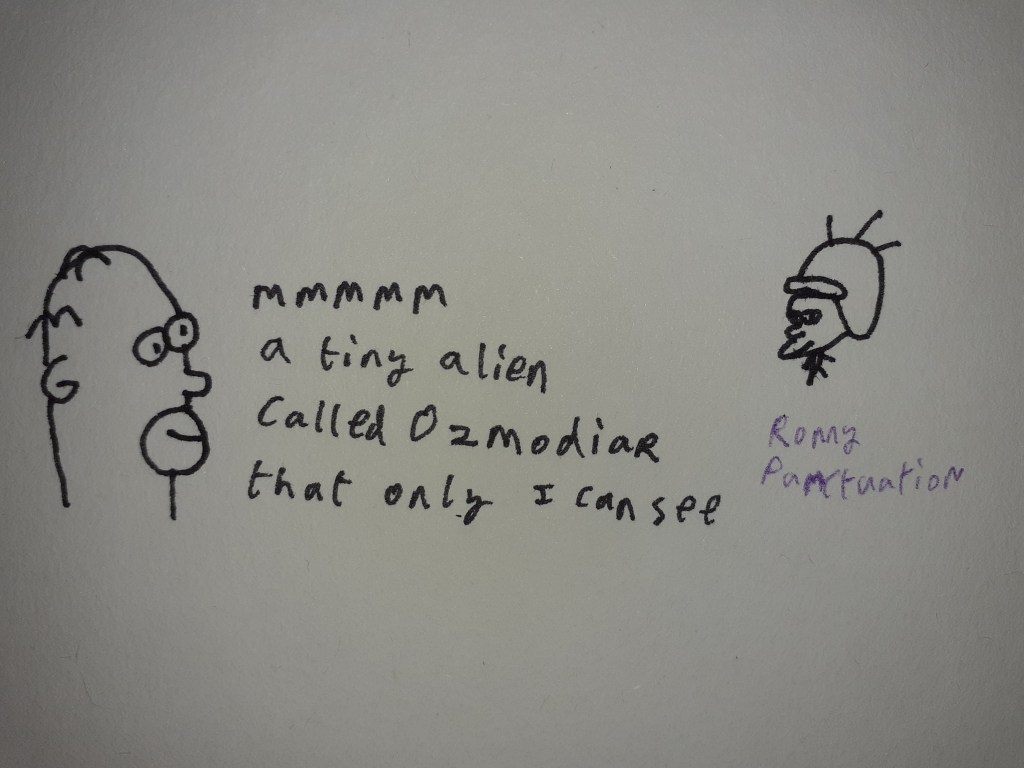 mmmmm
a tiny alien
Called Ozmodiar
that only I can see
Romy
Punctuation